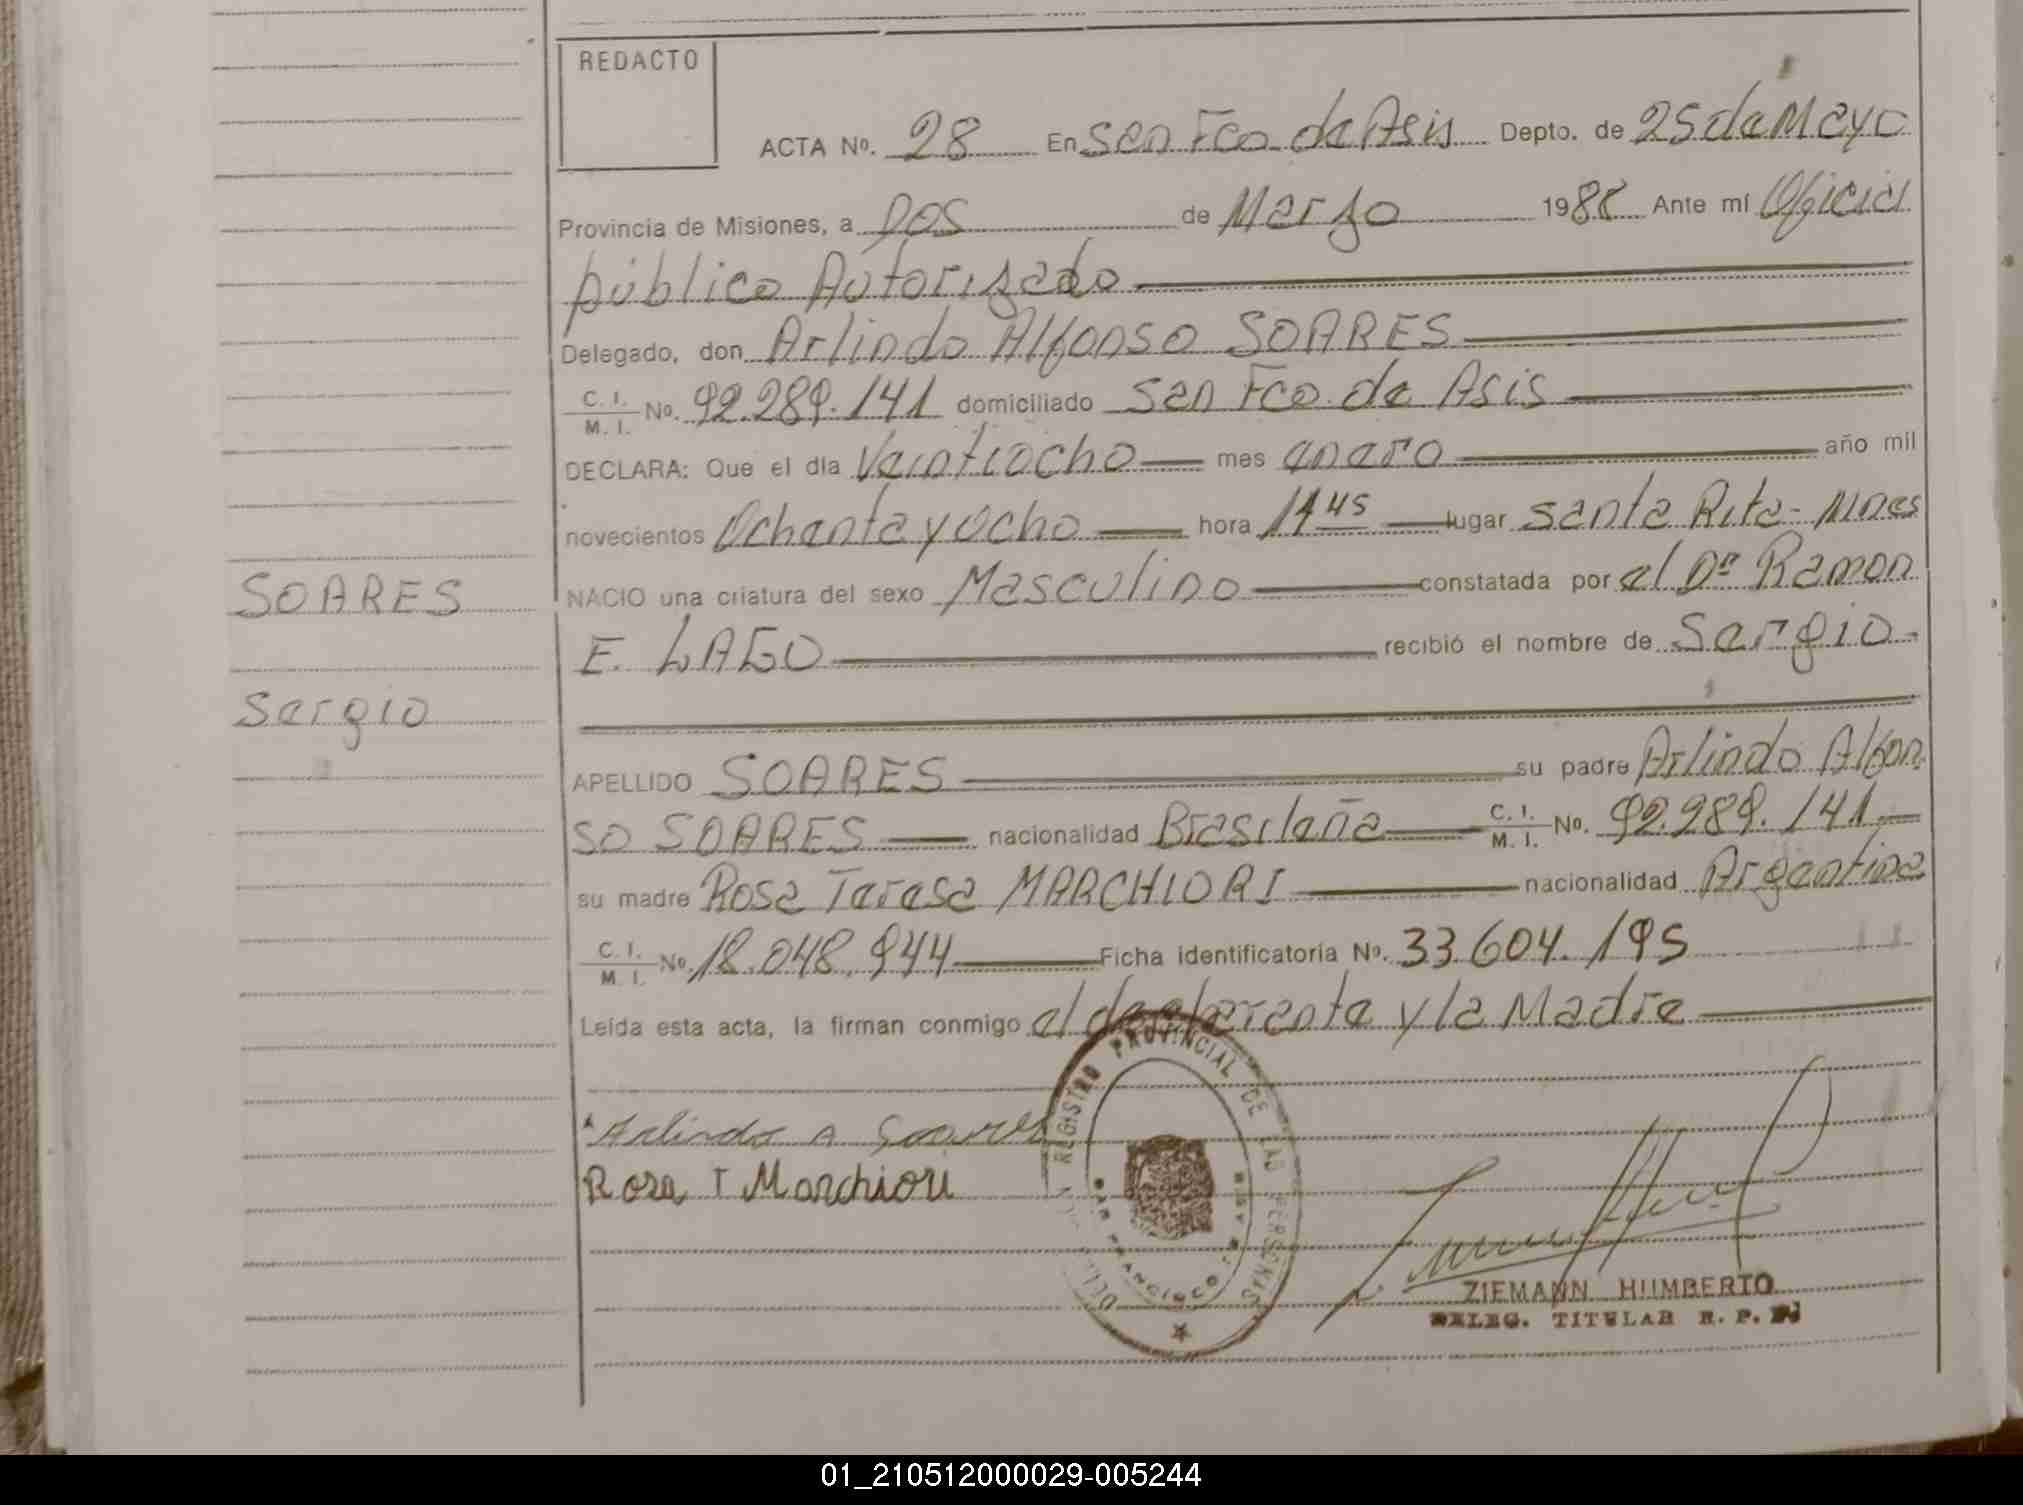 REDACTO
ACTA Nº. 28 En San Fco de Asis Depto. de 25 de Mayo
Provincia de Misiones, a DOS de Marzo 1988 Ante mí Oficial
público Autorizado
Delegado, don Arlindo Alfonso SOARES
C. I. / M. I. Nº. 92.289.141 domiciliado San Fco. de Asis
DECLARA: Que el día Veintiocho mes enero año mil
novecientos Ochenta y Ocho hora 1145 lugar Santa Rita - Mnes
SOARES
NACIO una criatura del sexo Masculino constatada por el Dr Ramon
E. LAGO recibió el nombre de Sergio
Sergio
APELLIDO SOARES su padre Arlindo Alfon
so SOARES nacionalidad Brasileña C. I. / M. I. Nº. 92.289.141
su madre Rosa Teresa MARCHIORI nacionalidad Argentina
C. I. / M. I. Nº. 18.048.944 Ficha identificatoria Nº. 33.604.195
Leída esta acta, la firman conmigo el declarante y la Madre
Arlindo A Soares
Rosa T Marchiori
REGISTRO PROVINCIAL DE LAS PERSONAS
SAN FRANCISCO
ZIEMANN HUMBERTO
DELEG. TITULAR R. P. P.
01_210512000029-005244